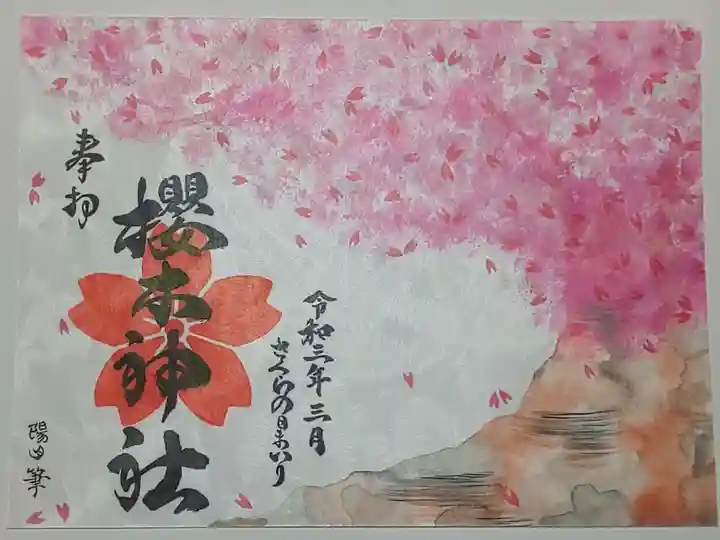 奉拝
櫻木神社
令和三年三月
さくらの日まいり
陽山筆